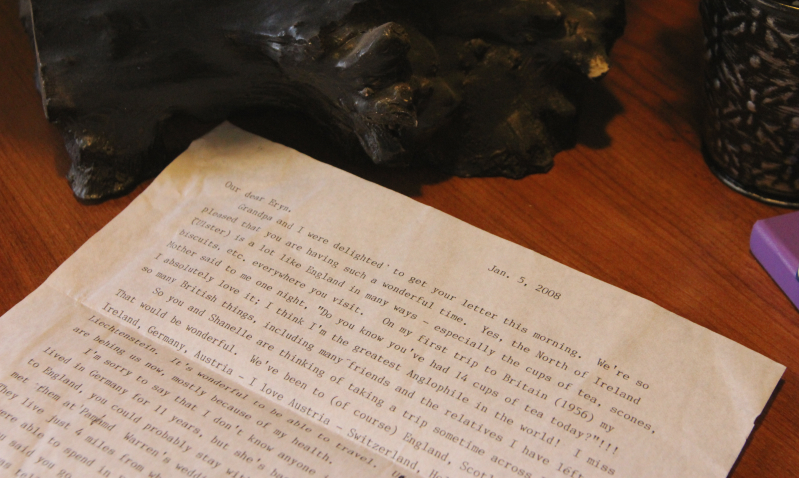 Jan. 5, 2008
Our dear Eryn,
Grandpa and I were delighted to get your letter this morning. We're so
pleased that you are having such a wonderful time. Yes, the North of Ireland
(Ulster) is a lot like England in many ways - especially the cups of tea, scones,
biscuits, etc. everywhere you visit. On my first trip to Britain (1956) my
Mother said to me one night, "Do you know you've had 14 cups of tea today?"!!!
I absolutely love it; I think I'm the greatest Anglophile in the world! I miss
so many British things, including many friends and the relatives I have left
So you and Shanelle are thinking of taking a trip sometime across
That would be wonderful. We've been to (of course) England, Scot
Ireland, Germany, Austria - I love Austria - Switzerland,
Liechtenstein. It's wonderful to be able to travel.
are behing us now, mostly because of my health.
I'm sorry to say that I don't know anyone
lived in Germany for 11 years, but she's ba
to England, you could probably stay wit
met them at and Warren's weddi
They live just 4 miles from wh
were able to spend in
you said you go